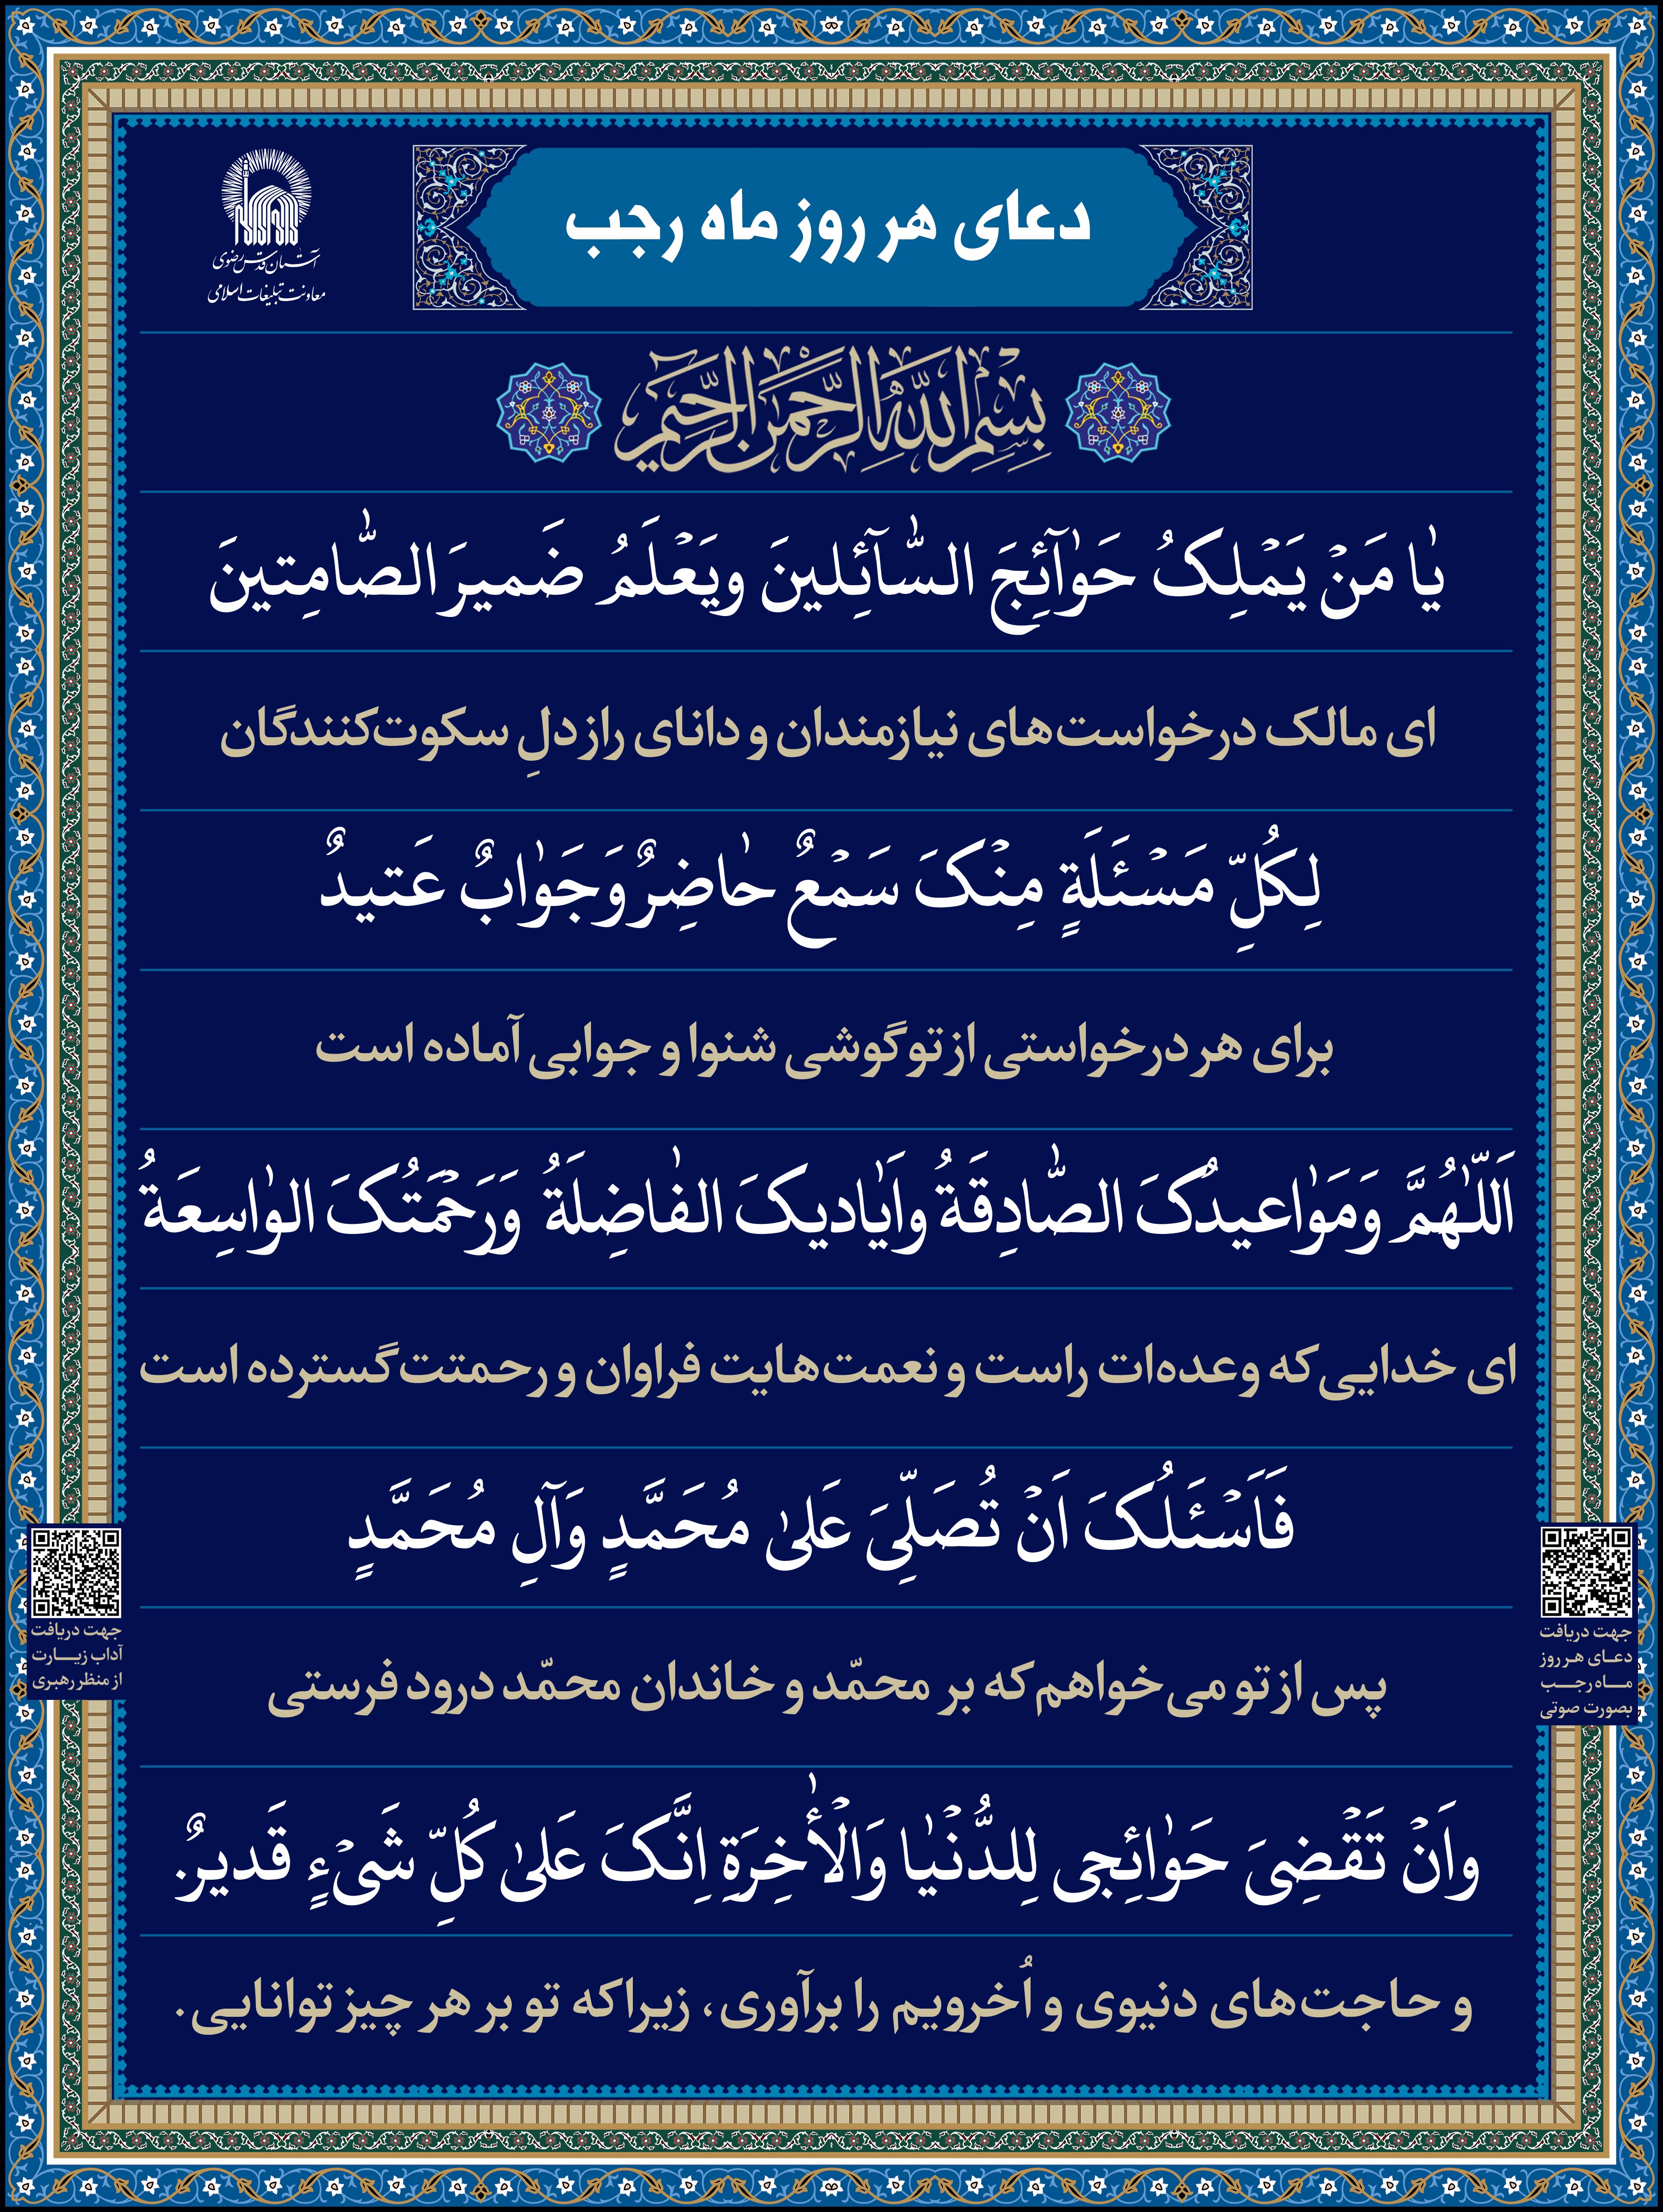 دعای هر روز ماه رجب
آستان قدس رضوی
معاونت تبلیغات اسلامی
بِسْمِ اللهِ الرَّحْمٰنِ الرَّحیمِ
یٰا مَنْ یَمْلِکُ حَوٰآئِجَ السّٰآئِلینَ ویَعْلَمُ ضَمیرَ الصّٰامِتینَ
ای مالک درخواست‌های نیازمندان و دانای راز دلِ سکوت‌کنندگان
لِکُلِّ مَسْئَلَةٍ مِنْکَ سَمْعٌ حٰاضِرٌ وَجَوٰابٌ عَتیدٌ
برای هر درخواستی از تو گوشی شنوا و جوابی آماده است
اَللّٰهُمَّ وَمَوٰاعیدُکَ الصّٰادِقَةُ واَیٰادیکَ الفٰاضِلَةُ وَرَحْمَتُکَ الوٰاسِعَةُ
ای خدایی که وعده‌ات راست و نعمت‌هایت فراوان و رحمتت گسترده است
فَاَسْئَلُکَ اَنْ تُصَلِّیَ عَلیٰ مُحَمَّدٍ وَآلِ مُحَمَّدٍ
پس از تو می‌خواهم که بر محمّد و خاندان محمّد درود فرستی
واَنْ تَقْضِیَ حَوٰائِجی لِلدُّنْیٰا وَالْأٰخِرَةِ اِنَّکَ عَلیٰ کُلِّ شَیْءٍ قَدیرٌ.
و حاجت‌های دنیوی و اُخرویم را برآوری، زیرا که تو بر هر چیز توانایی.
جهت دریافت
دعـای هـر روز
مـــاه رجـــب
بصورت صوتی
جهت دریافت
آداب زیـــارت
از منظر رهبری